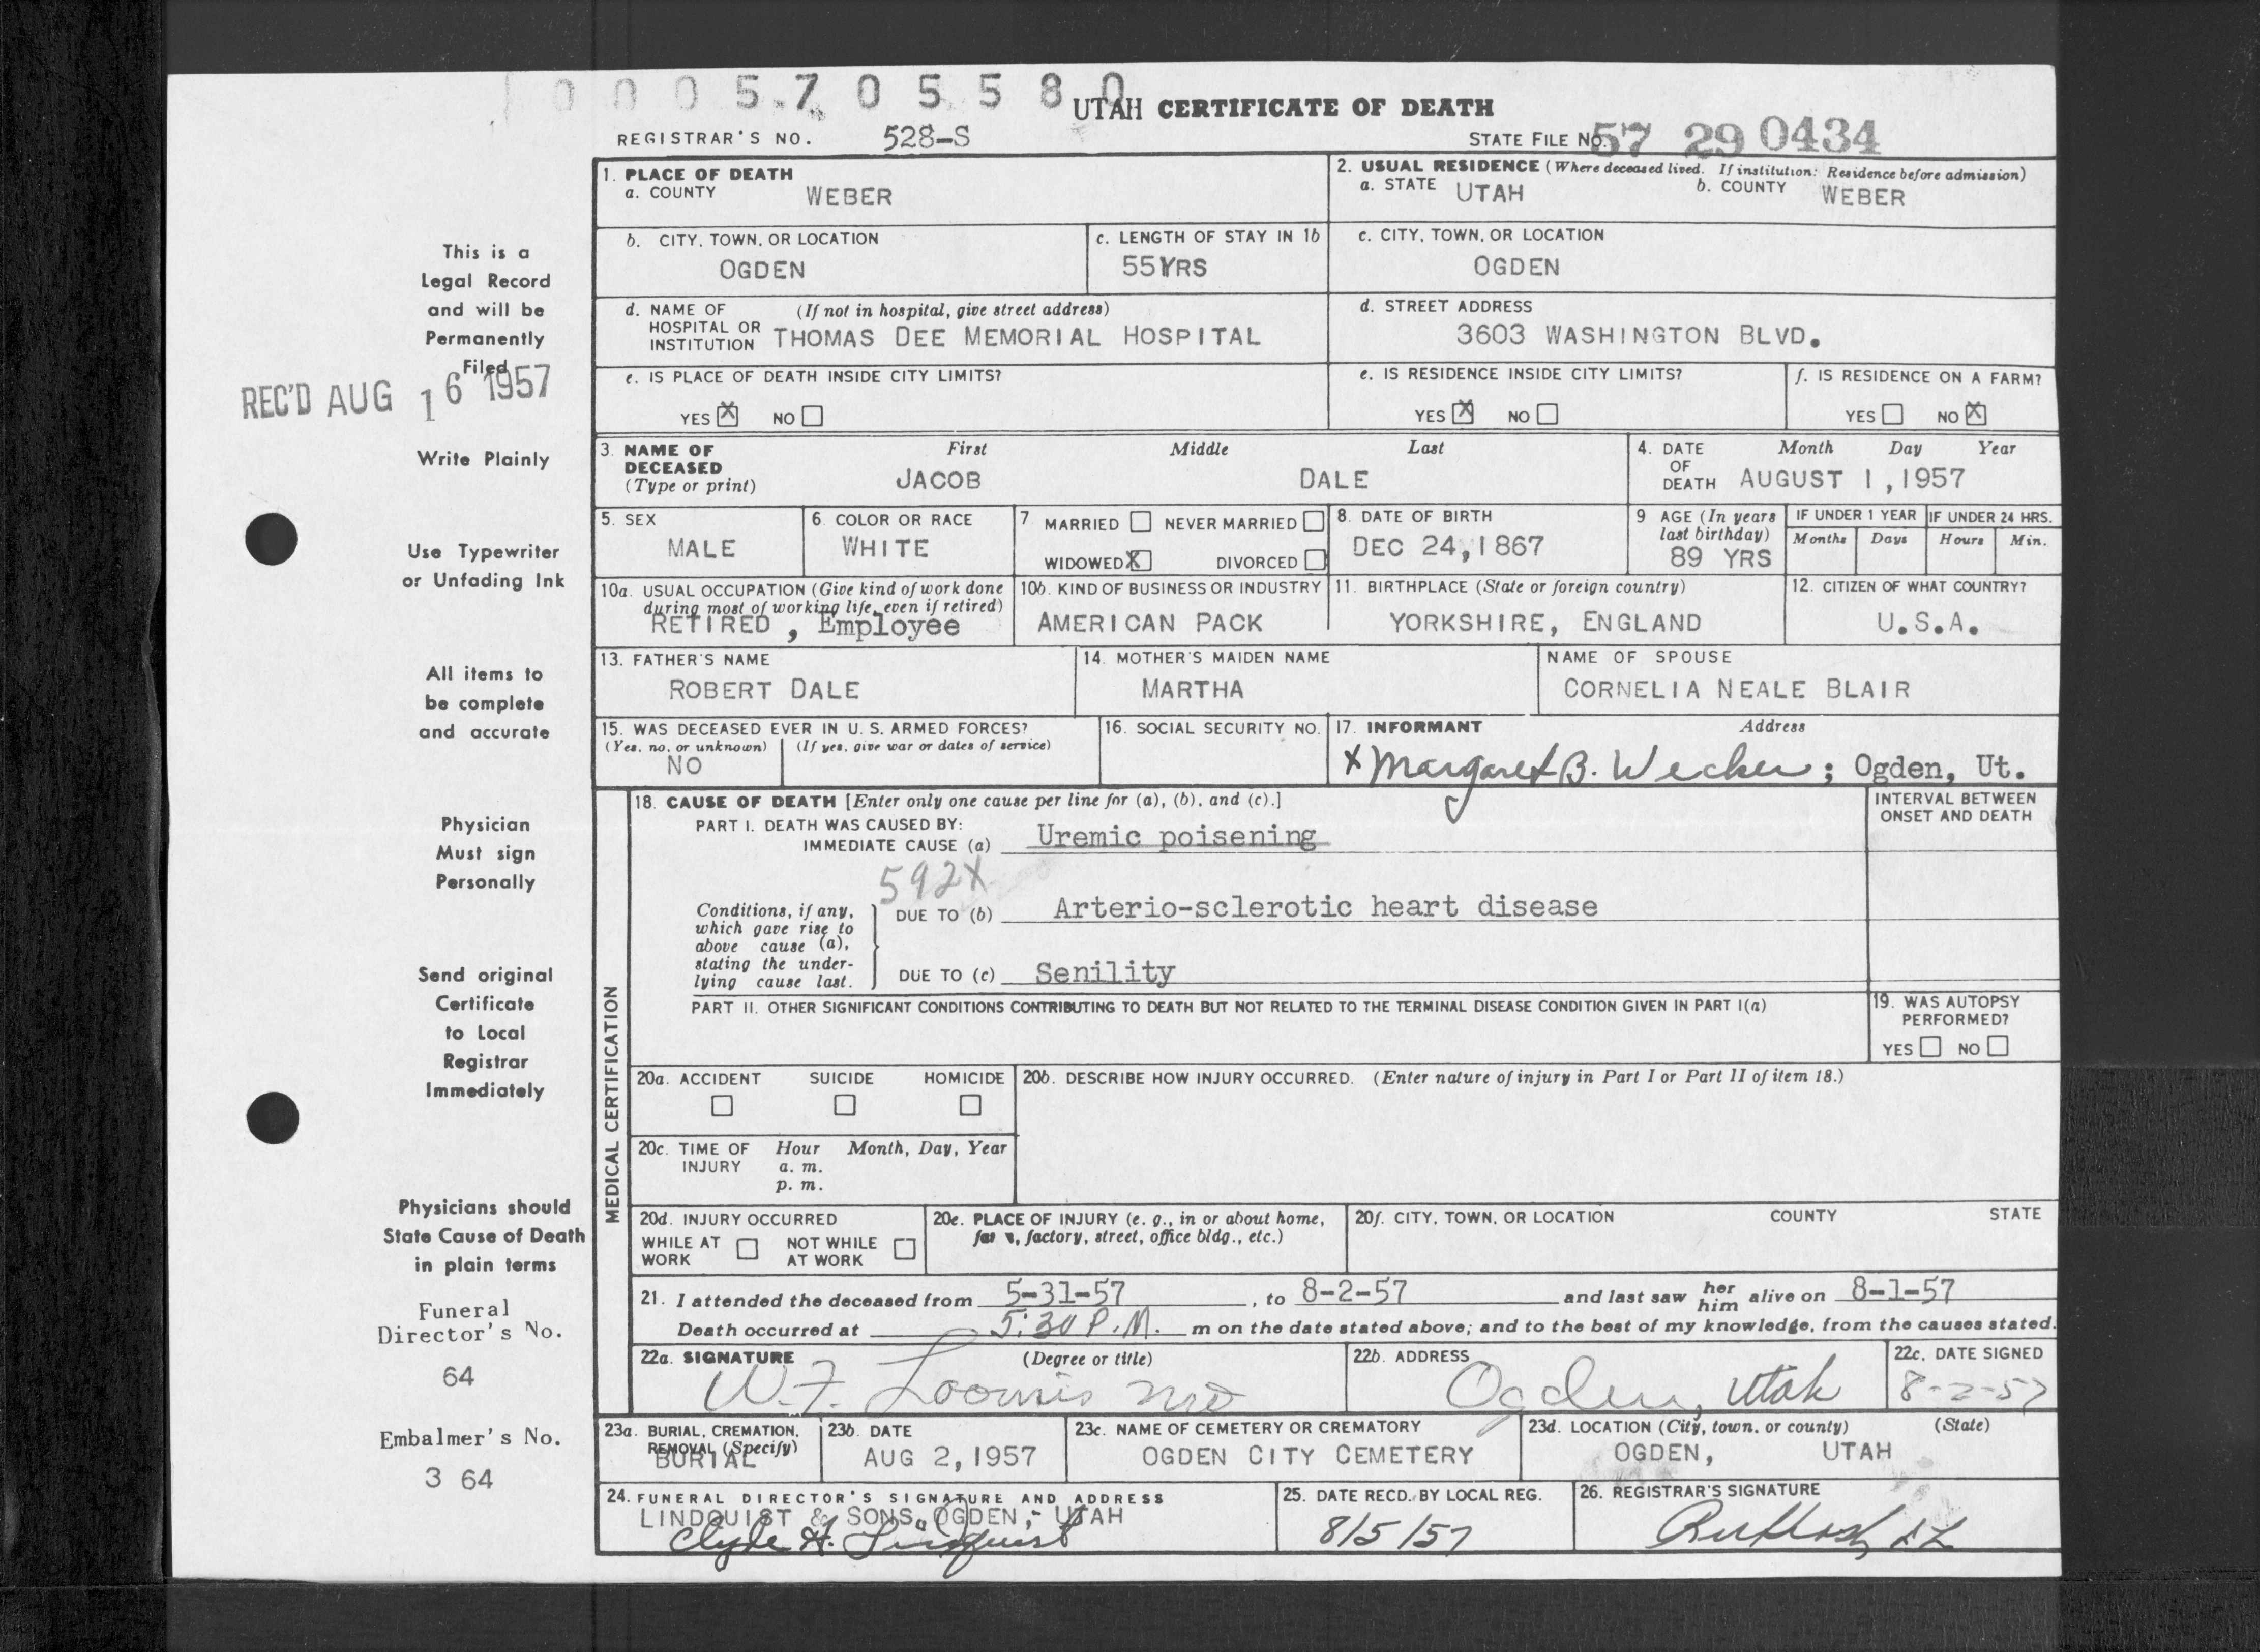 0 0 0 5 7 0 5 5 8 0
UTAH CERTIFICATE OF DEATH
REGISTRAR'S NO. 528-S
STATE FILE NO. 57 29 0434
1. PLACE OF DEATH
a. COUNTY WEBER
2. USUAL RESIDENCE (Where deceased lived. If institution: Residence before admission)
a. STATE UTAH b. COUNTY WEBER
b. CITY, TOWN, OR LOCATION OGDEN
c. LENGTH OF STAY IN 1b 55YRS
c. CITY, TOWN, OR LOCATION OGDEN
d. NAME OF HOSPITAL OR INSTITUTION (If not in hospital, give street address) THOMAS DEE MEMORIAL HOSPITAL
d. STREET ADDRESS 3603 WASHINGTON BLVD.
e. IS PLACE OF DEATH INSIDE CITY LIMITS?
YES X NO
e. IS RESIDENCE INSIDE CITY LIMITS?
YES X NO
f. IS RESIDENCE ON A FARM?
YES NO X
3. NAME OF DECEASED (Type or print) First Middle Last
JACOB DALE
4. DATE OF DEATH Month Day Year
AUGUST 1,1957
5. SEX MALE
6. COLOR OR RACE WHITE
7. MARRIED NEVER MARRIED
WIDOWED X DIVORCED
8. DATE OF BIRTH DEC 24,1867
9 AGE (In years last birthday) 89 YRS
IF UNDER 1 YEAR Months Days
IF UNDER 24 HRS. Hours Min.
10a. USUAL OCCUPATION (Give kind of work done during most of working life, even if retired)
RETIRED , Employee
10b. KIND OF BUSINESS OR INDUSTRY AMERICAN PACK
11. BIRTHPLACE (State or foreign country) YORKSHIRE, ENGLAND
12. CITIZEN OF WHAT COUNTRY? U.S.A.
13. FATHER'S NAME ROBERT DALE
14. MOTHER'S MAIDEN NAME MARTHA
NAME OF SPOUSE CORNELIA NEALE BLAIR
15. WAS DECEASED EVER IN U. S. ARMED FORCES?
(Yes, no, or unknown) (If yes, give war or dates of service)
NO
16. SOCIAL SECURITY NO.
17. INFORMANT Address
X Margaret B. Wecker; Ogden, Ut.
MEDICAL CERTIFICATION
18. CAUSE OF DEATH [Enter only one cause per line for (a), (b), and (c).]
INTERVAL BETWEEN ONSET AND DEATH
PART I. DEATH WAS CAUSED BY:
IMMEDIATE CAUSE (a) Uremic poisening
592X
Conditions, if any, which gave rise to above cause (a), stating the underlying cause last.
DUE TO (b) Arterio-sclerotic heart disease
DUE TO (c) Senility
PART II. OTHER SIGNIFICANT CONDITIONS CONTRIBUTING TO DEATH BUT NOT RELATED TO THE TERMINAL DISEASE CONDITION GIVEN IN PART I(a)
19. WAS AUTOPSY PERFORMED?
YES NO
20a. ACCIDENT SUICIDE HOMICIDE
20b. DESCRIBE HOW INJURY OCCURRED. (Enter nature of injury in Part I or Part II of item 18.)
20c. TIME OF INJURY Hour Month, Day, Year
a. m.
p. m.
20d. INJURY OCCURRED
WHILE AT WORK NOT WHILE AT WORK
20e. PLACE OF INJURY (e. g., in or about home, factory, street, office bldg., etc.)
20f. CITY, TOWN, OR LOCATION COUNTY STATE
21. I attended the deceased from 5-31-57, to 8-2-57 and last saw her him alive on 8-1-57
Death occurred at 5:30 P.M. m on the date stated above; and to the best of my knowledge, from the causes stated.
22a. SIGNATURE (Degree or title)
W.F. Loomis MD
22b. ADDRESS Ogden, Utah
22c. DATE SIGNED 8-2-57
23a. BURIAL, CREMATION, REMOVAL (Specify) BURIAL
23b. DATE AUG 2,1957
23c. NAME OF CEMETERY OR CREMATORY OGDEN CITY CEMETERY
23d. LOCATION (City, town, or county) (State)
OGDEN, UTAH
24. FUNERAL DIRECTOR'S SIGNATURE AND ADDRESS
LINDQUIST & SONS, OGDEN, UTAH
Clyde H. Lindquist
25. DATE RECD. BY LOCAL REG. 8/5/57
26. REGISTRAR'S SIGNATURE
This is a
Legal Record
and will be
Permanently
Filed
REC'D AUG 16 1957
Write Plainly
Use Typewriter
or Unfading Ink
All items to
be complete
and accurate
Physician
Must sign
Personally
Send original
Certificate
to Local
Registrar
Immediately
Physicians should
State Cause of Death
in plain terms
Funeral
Director's No.
64
Embalmer's No.
3 64